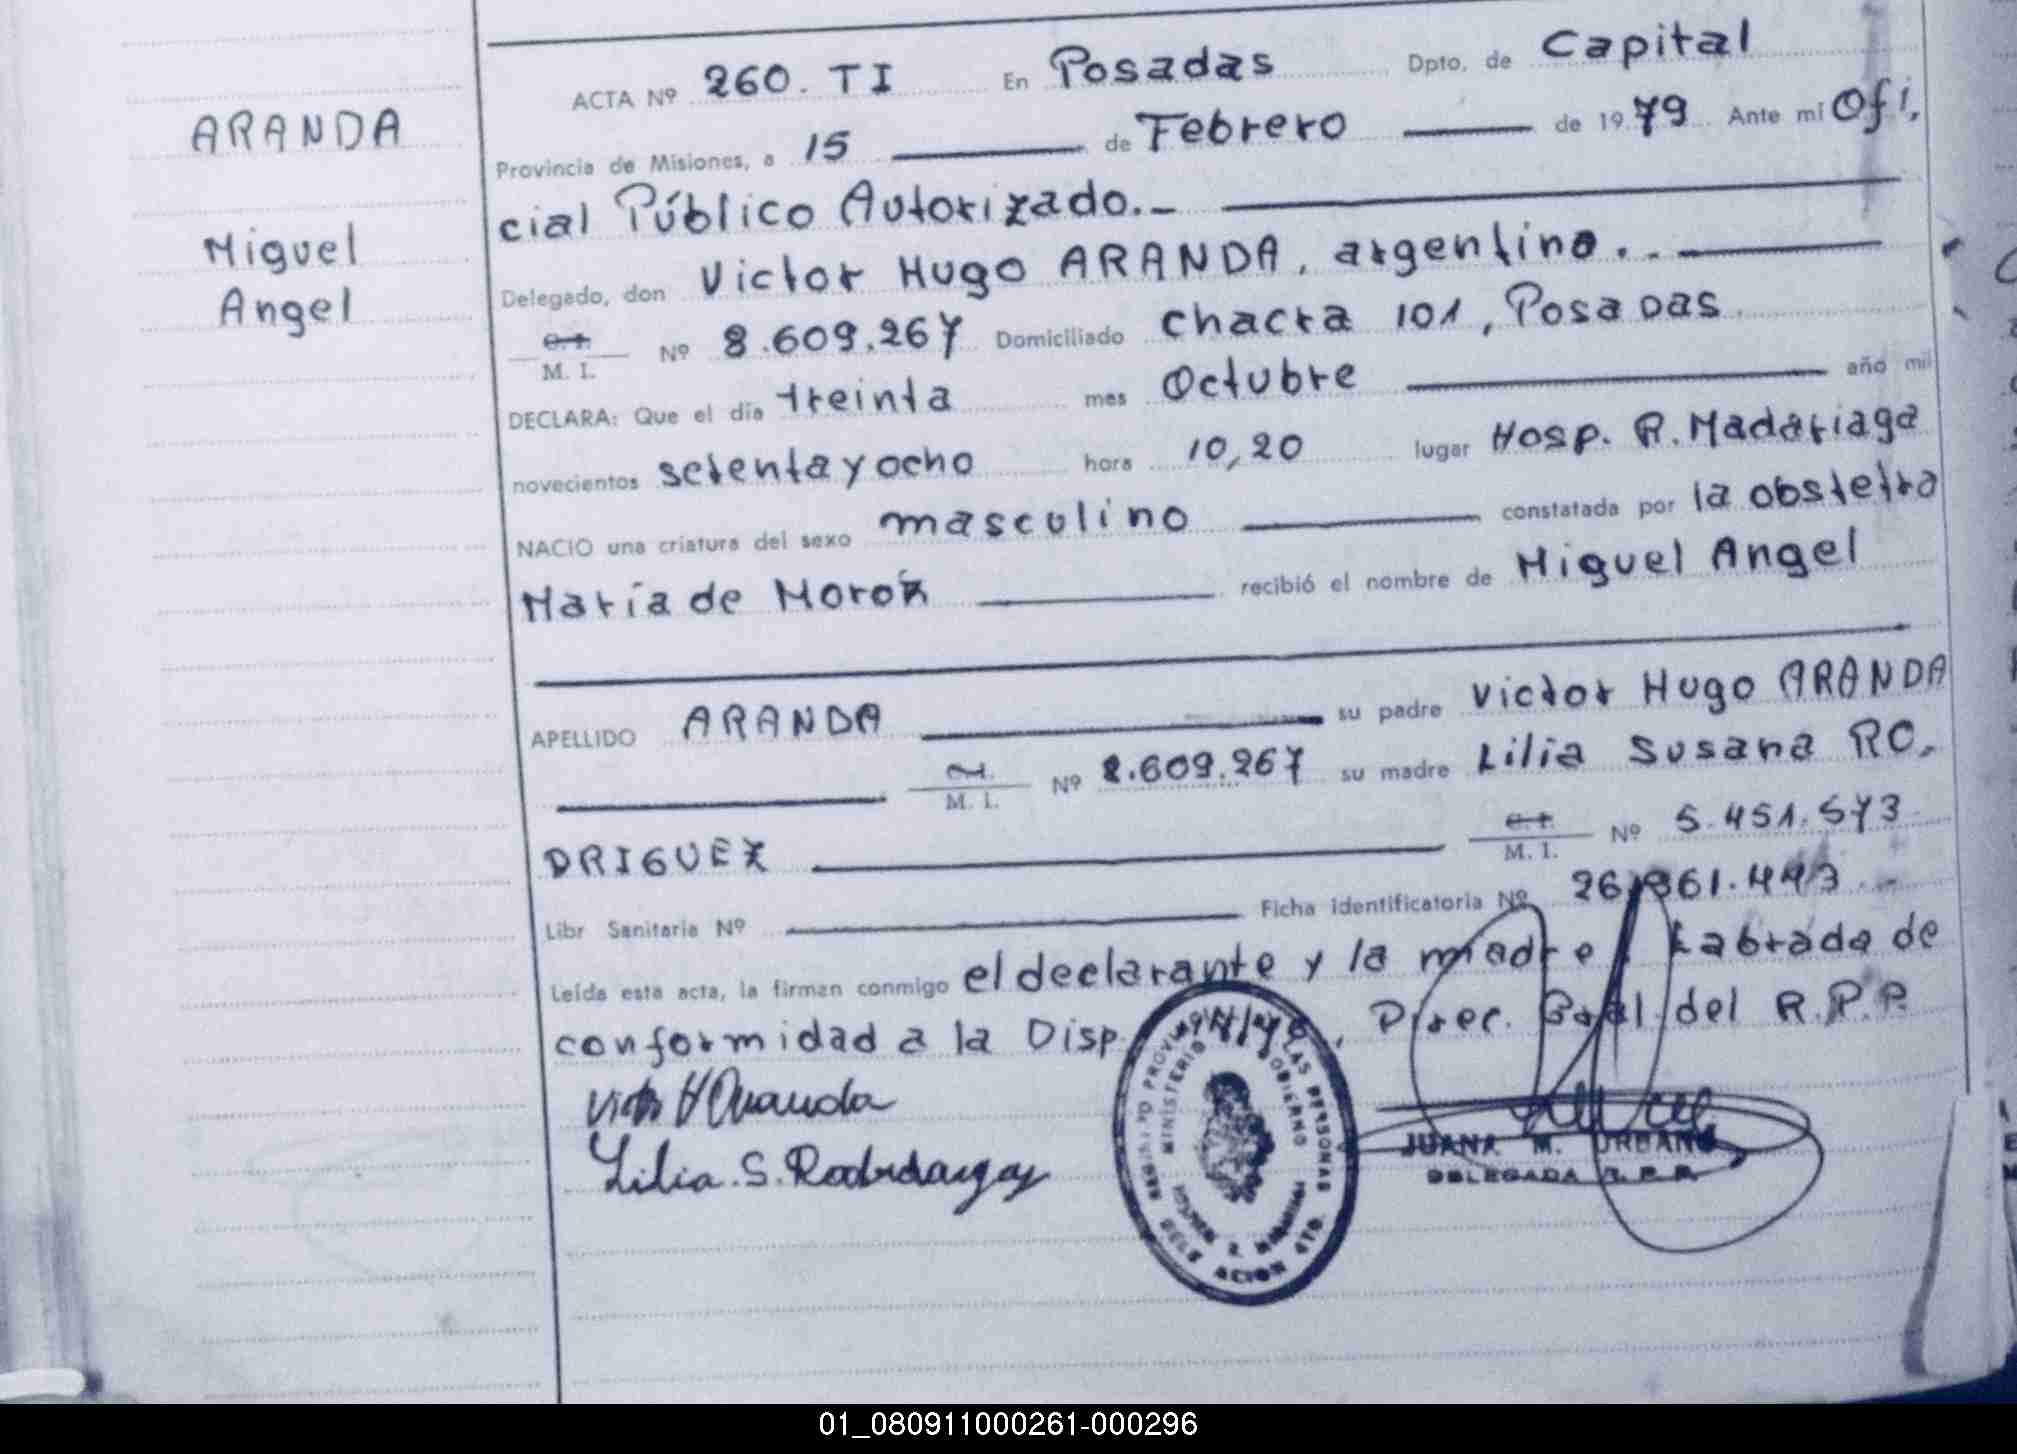 ARANDA
Miguel
Angel
ACTA Nº 260. TI En Posadas Dpto. de Capital
Provincia de Misiones, a 15 de Febrero de 1979 Ante mí Ofi,
cial Público Autorizado.-
Delegado, don Victor Hugo ARANDA, argentino.-
C.I. M. I. Nº 8.609.267 Domiciliado chacra 101, Posadas
DECLARA: Que el día treinta mes Octubre año mil
novecientos setenta y ocho hora 10,20 lugar Hosp. R. Madariaga
NACIO una criatura del sexo masculino constatada por la obstetra
María de recibió el nombre de Miguel Angel
APELLIDO ARANDA su padre Victor Hugo ARANDA
M. I. Nº 8.609.267 su madre Lilia Susana RO,
DRIGUEZ C.I. M. I. Nº 5.451.573
Libr Sanitaria Nº Ficha identificatoria Nº
Leída esta acta, la firman conmigo el declarante y la madre Labrada de
conformidad a la Disp. Direc. Gral. del R.P.P.
Victor H Aranda
Lilia. S. 
MINISTERIO GOBIERNO
LAS PERSONAS
JUANA M. URBANO
DELEGADA R. P. P.
01_080911000261-000296